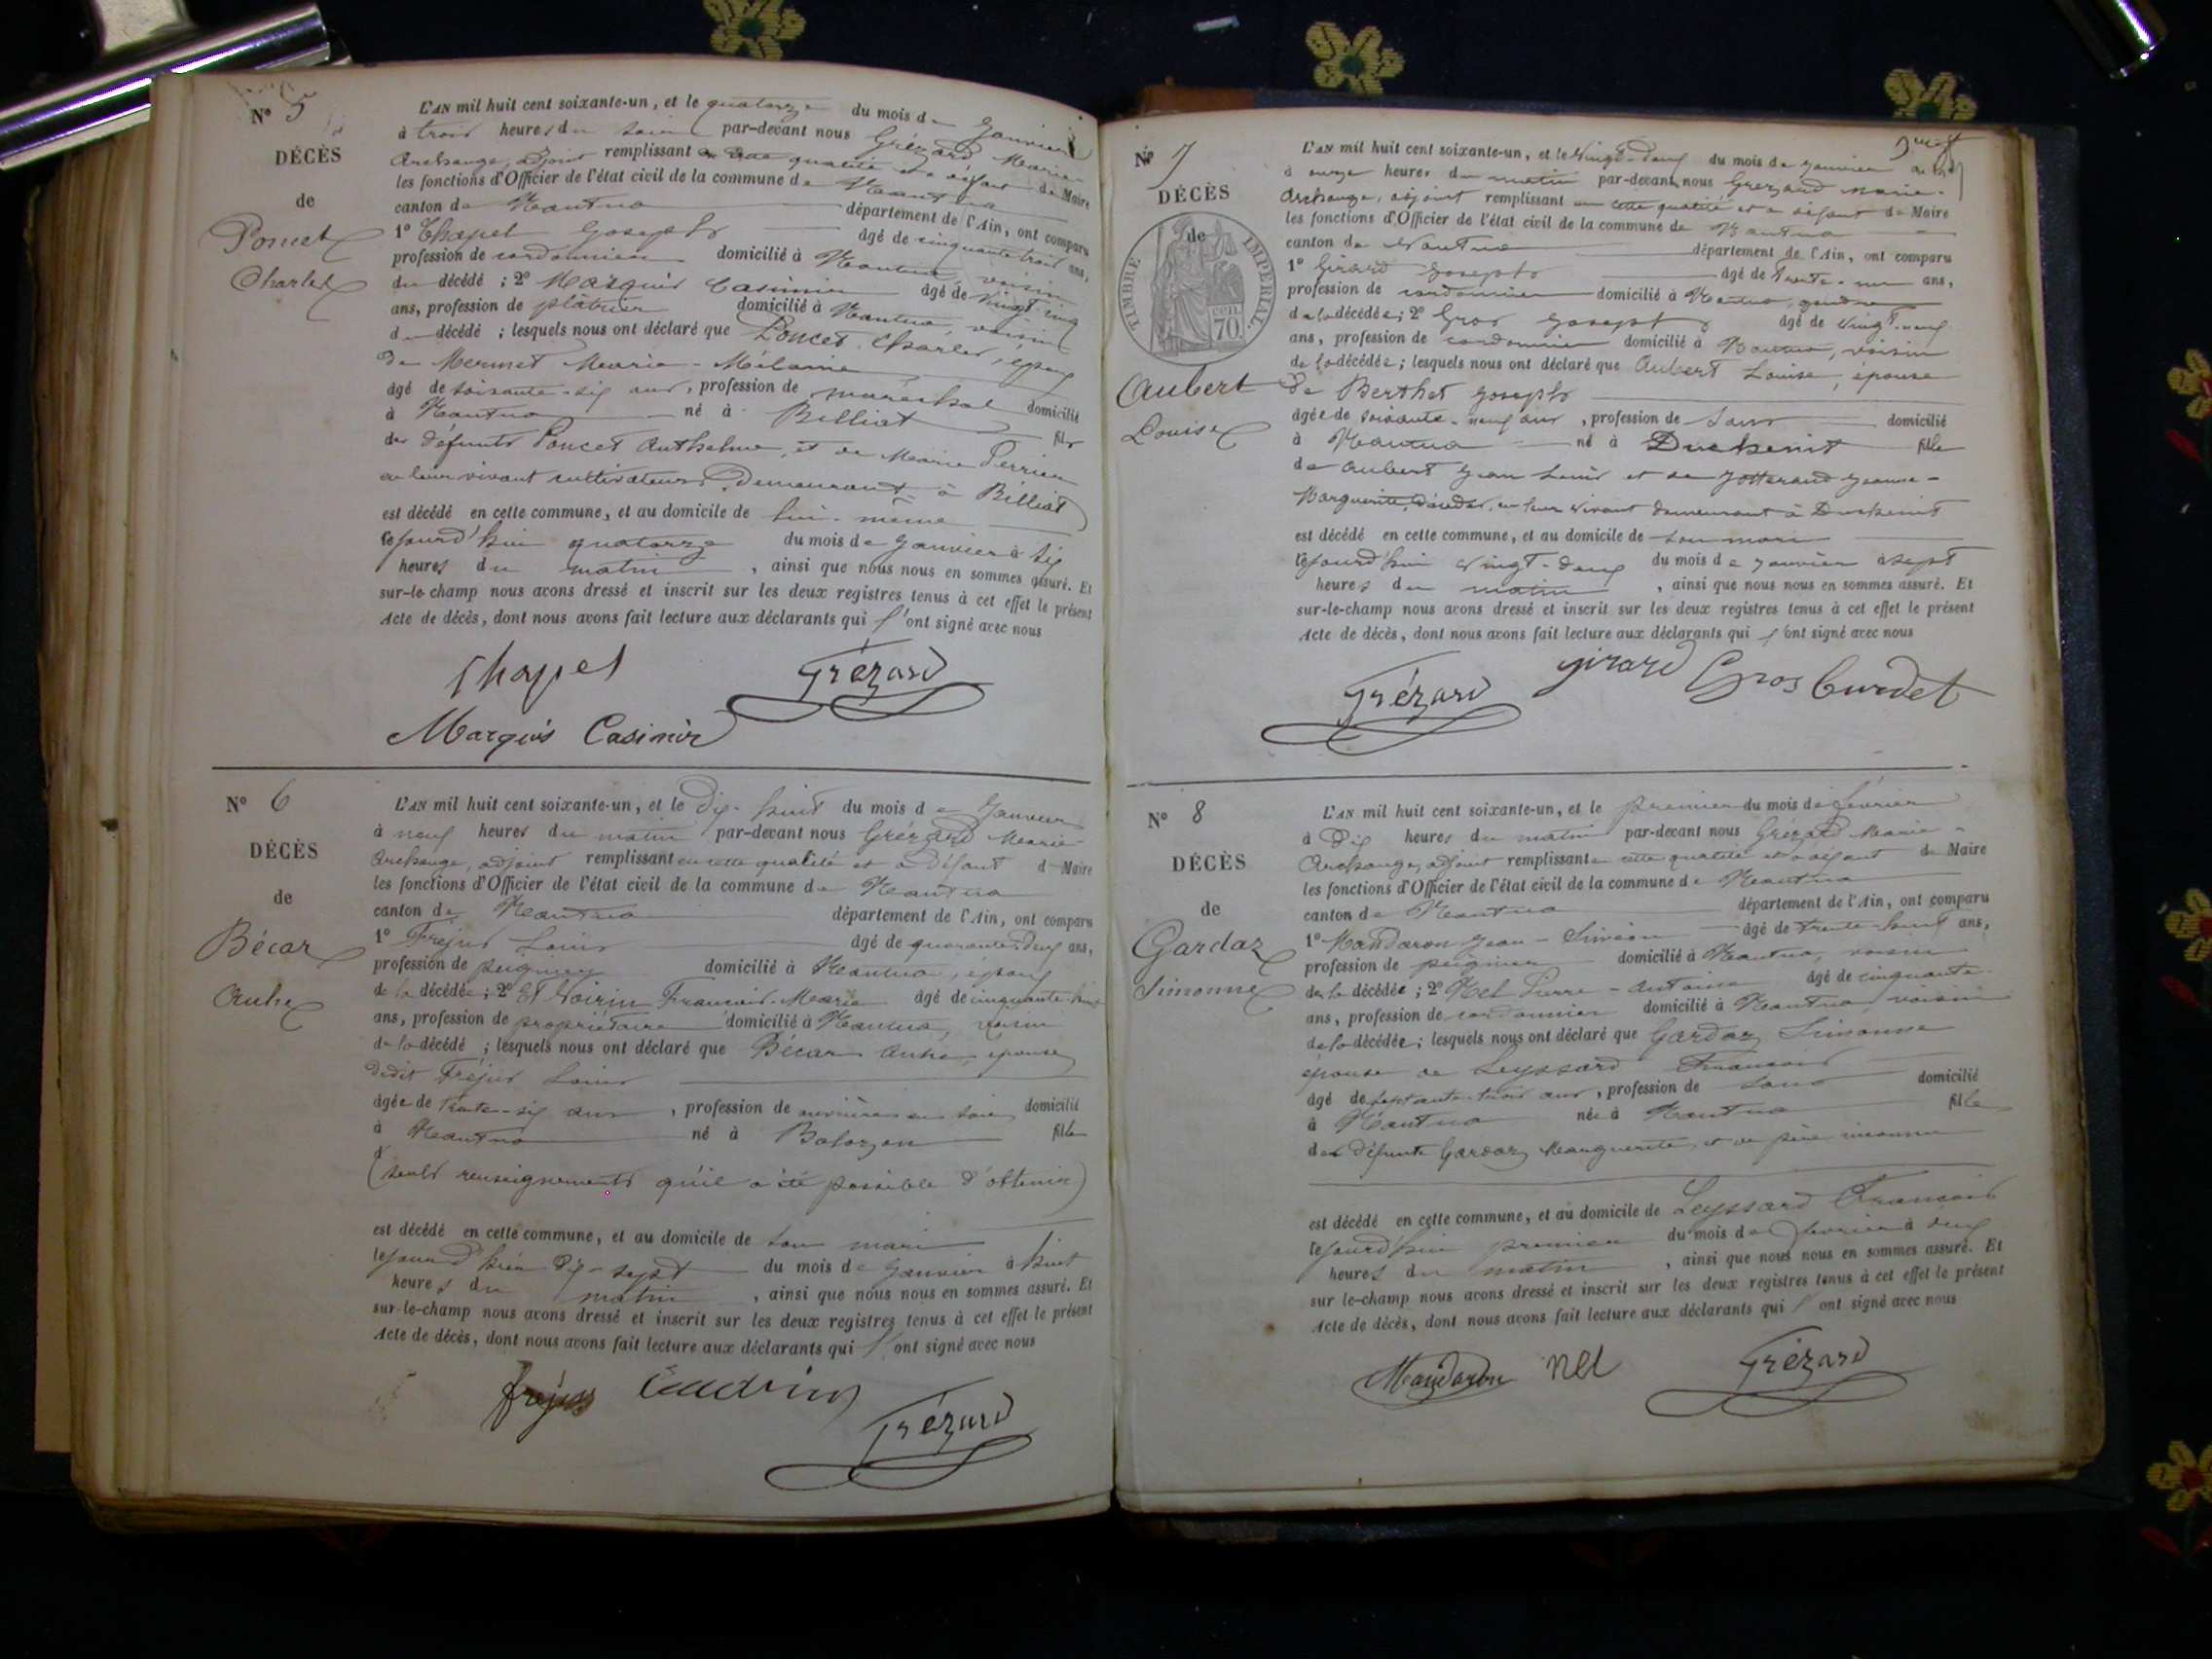 N° 5
DÉCÈS
de
Poncet
Charles
L'AN mil huit cent soixante-un, et le quatorze du mois de Janvier
à trois heures du soir par-devant nous Grézard Marie
Archange, adjoint remplissant en cette qualité et a défaut de Maire
les fonctions d'Officier de l'état civil de la commune de Nantua
canton de Nantua département de l'Ain, ont comparu
1° Chapel Joseph âgé de cinquante trois ans,
profession de cordonnier domicilié à Nantua, voisin
du décédé ; 2° Marquis Casimir âgé de vingt-cinq
ans, profession de plâtrier domicilié à Nantua, voisin
du décédé ; lesquels nous ont déclaré que Poncet Charles, époux
de Mermet Marie-Mélanie
âgé de soixante-six ans, profession de maréchal domicilié
à Nantua né à Billiat fils
des défunts Poncet Anthelme, et de Marie Perrier
en leur vivant cultivateurs Demeurant à Billiat
est décédé en cette commune, et au domicile de lui-même
cejourd'hui quatorze du mois de Janvier à six
heures du matin, ainsi que nous nous en sommes assuré. Et
sur-le-champ nous avons dressé et inscrit sur les deux registres tenus à cet effet le présent
Acte de décès, dont nous avons fait lecture aux déclarants qui l'ont signé avec nous
Chapel Grézard
Marquis Casimir
N° 6
DÉCÈS
de
Bécar
L'AN mil huit cent soixante-un, et le dix-huit du mois de Janvier
à neuf heures du matin par-devant nous Grézard Marie
Archange, adjoint remplissant en cette qualité et a défaut d Maire
les fonctions d'Officier de l'état civil de la commune de Nantua
canton de Nantua département de l'Ain, ont comparu
1° Fréjus Louis âgé de quarante-deux ans,
profession de peignier domicilié à Nantua, époux
de la décédée ; 2° François-Marie âgé de cinquante-huit
ans, profession de propriétaire domicilié à Nantua, voisin
de la décédé ; lesquels nous ont déclaré que Bécar épouse
dudit Fréjus Louis
âgée de trente-six ans, profession de ouvrière en soie domicilié
à Nantua né à fille
d
(seuls renseignements qu'il a été possible d'obtenir)
est décédé en cette commune, et au domicile de son mari
cejourd'hui dix-sept du mois de Janvier à huit
heures du matin, ainsi que nous nous en sommes assuré. Et
sur-le-champ nous avons dressé et inscrit sur les deux registres tenus à cet effet le présent
Acte de décès, dont nous avons fait lecture aux déclarants qui l'ont signé avec nous
fréjus
Grézard
N° 7
DÉCÈS
de
TIMBRE IMPÉRIAL
CEN. 70
Aubert
Louise
L'AN mil huit cent soixante-un, et le vingt-deux du mois de Janvier
à onze heures du matin par-devant nous Grézard Marie-
Archange, adjoint remplissant en cette qualité et a défaut de Maire
les fonctions d'Officier de l'état civil de la commune de Nantua
canton de Nantua département de l'Ain, ont comparu
1° Girard Joseph âgé de trente-un ans,
profession de cordonnier domicilié à Nantua, gendre
de la décédée ; 2° Gros Joseph âgé de vingt-neuf
ans, profession de cordonnier domicilié à Nantua, voisin
de la décédée ; lesquels nous ont déclaré que Aubert Louise, épouse
de Berthet Joseph
âgée de soixante-neuf ans, profession de sans domicilié
à Nantua né à fille
de Aubert Jean Louis et de Jeanne-
Marguerite, décédés, en leur vivant demeurant à
est décédé en cette commune, et au domicile de son mari
cejourd'hui vingt-deux du mois de Janvier à sept
heures du matin, ainsi que nous nous en sommes assuré. Et
sur-le-champ nous avons dressé et inscrit sur les deux registres tenus à cet effet le présent
Acte de décès, dont nous avons fait lecture aux déclarants qui l'ont signé avec nous
Grézard Girard Gros Curdet
N° 8
DÉCÈS
de
Gardaz
Simonne
L'AN mil huit cent soixante-un, et le premier du mois de février
à dix heures du matin par-devant nous Grézard Marie-
Archange, adjoint remplissant en cette qualité et a défaut de Maire
les fonctions d'Officier de l'état civil de la commune de Nantua
canton de Nantua département de l'Ain, ont comparu
1° Mandaron Jean-Siméon âgé de trente-huit ans,
profession de peignier domicilié à Nantua, voisin
de la décédée ; 2° Nel Pierre-Antoine âgé de cinquante
ans, profession de cordonnier domicilié à Nantua voisin
de la décédée ; lesquels nous ont déclaré que Gardaz Simonne
épouse de Leyssard François
âgé de septante-trois ans, profession de sans domicilié
à Nantua née à Nantua fille
de défunte Gardaz Marguerite, et de père inconnu
est décédé en cette commune, et au domicile de Leyssard François
cejourd'hui premier du mois de février à deux
heures du matin, ainsi que nous nous en sommes assuré. Et
sur le-champ nous avons dressé et inscrit sur les deux registres tenus à cet effet le présent
Acte de décès, dont nous avons fait lecture aux déclarants qui l'ont signé avec nous
Mandaron nel Grézard